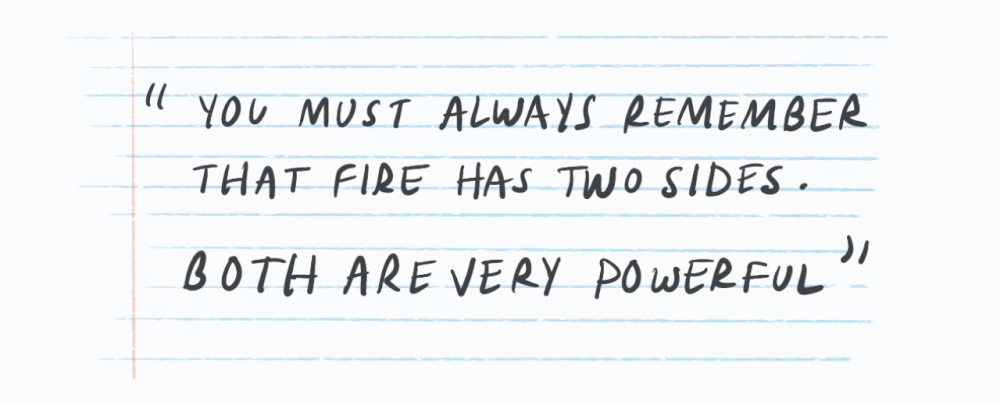 “ YOU MUST ALWAYS REMEMBER
THAT FIRE HAS TWO SIDES.
BOTH ARE VERY POWERFUL”